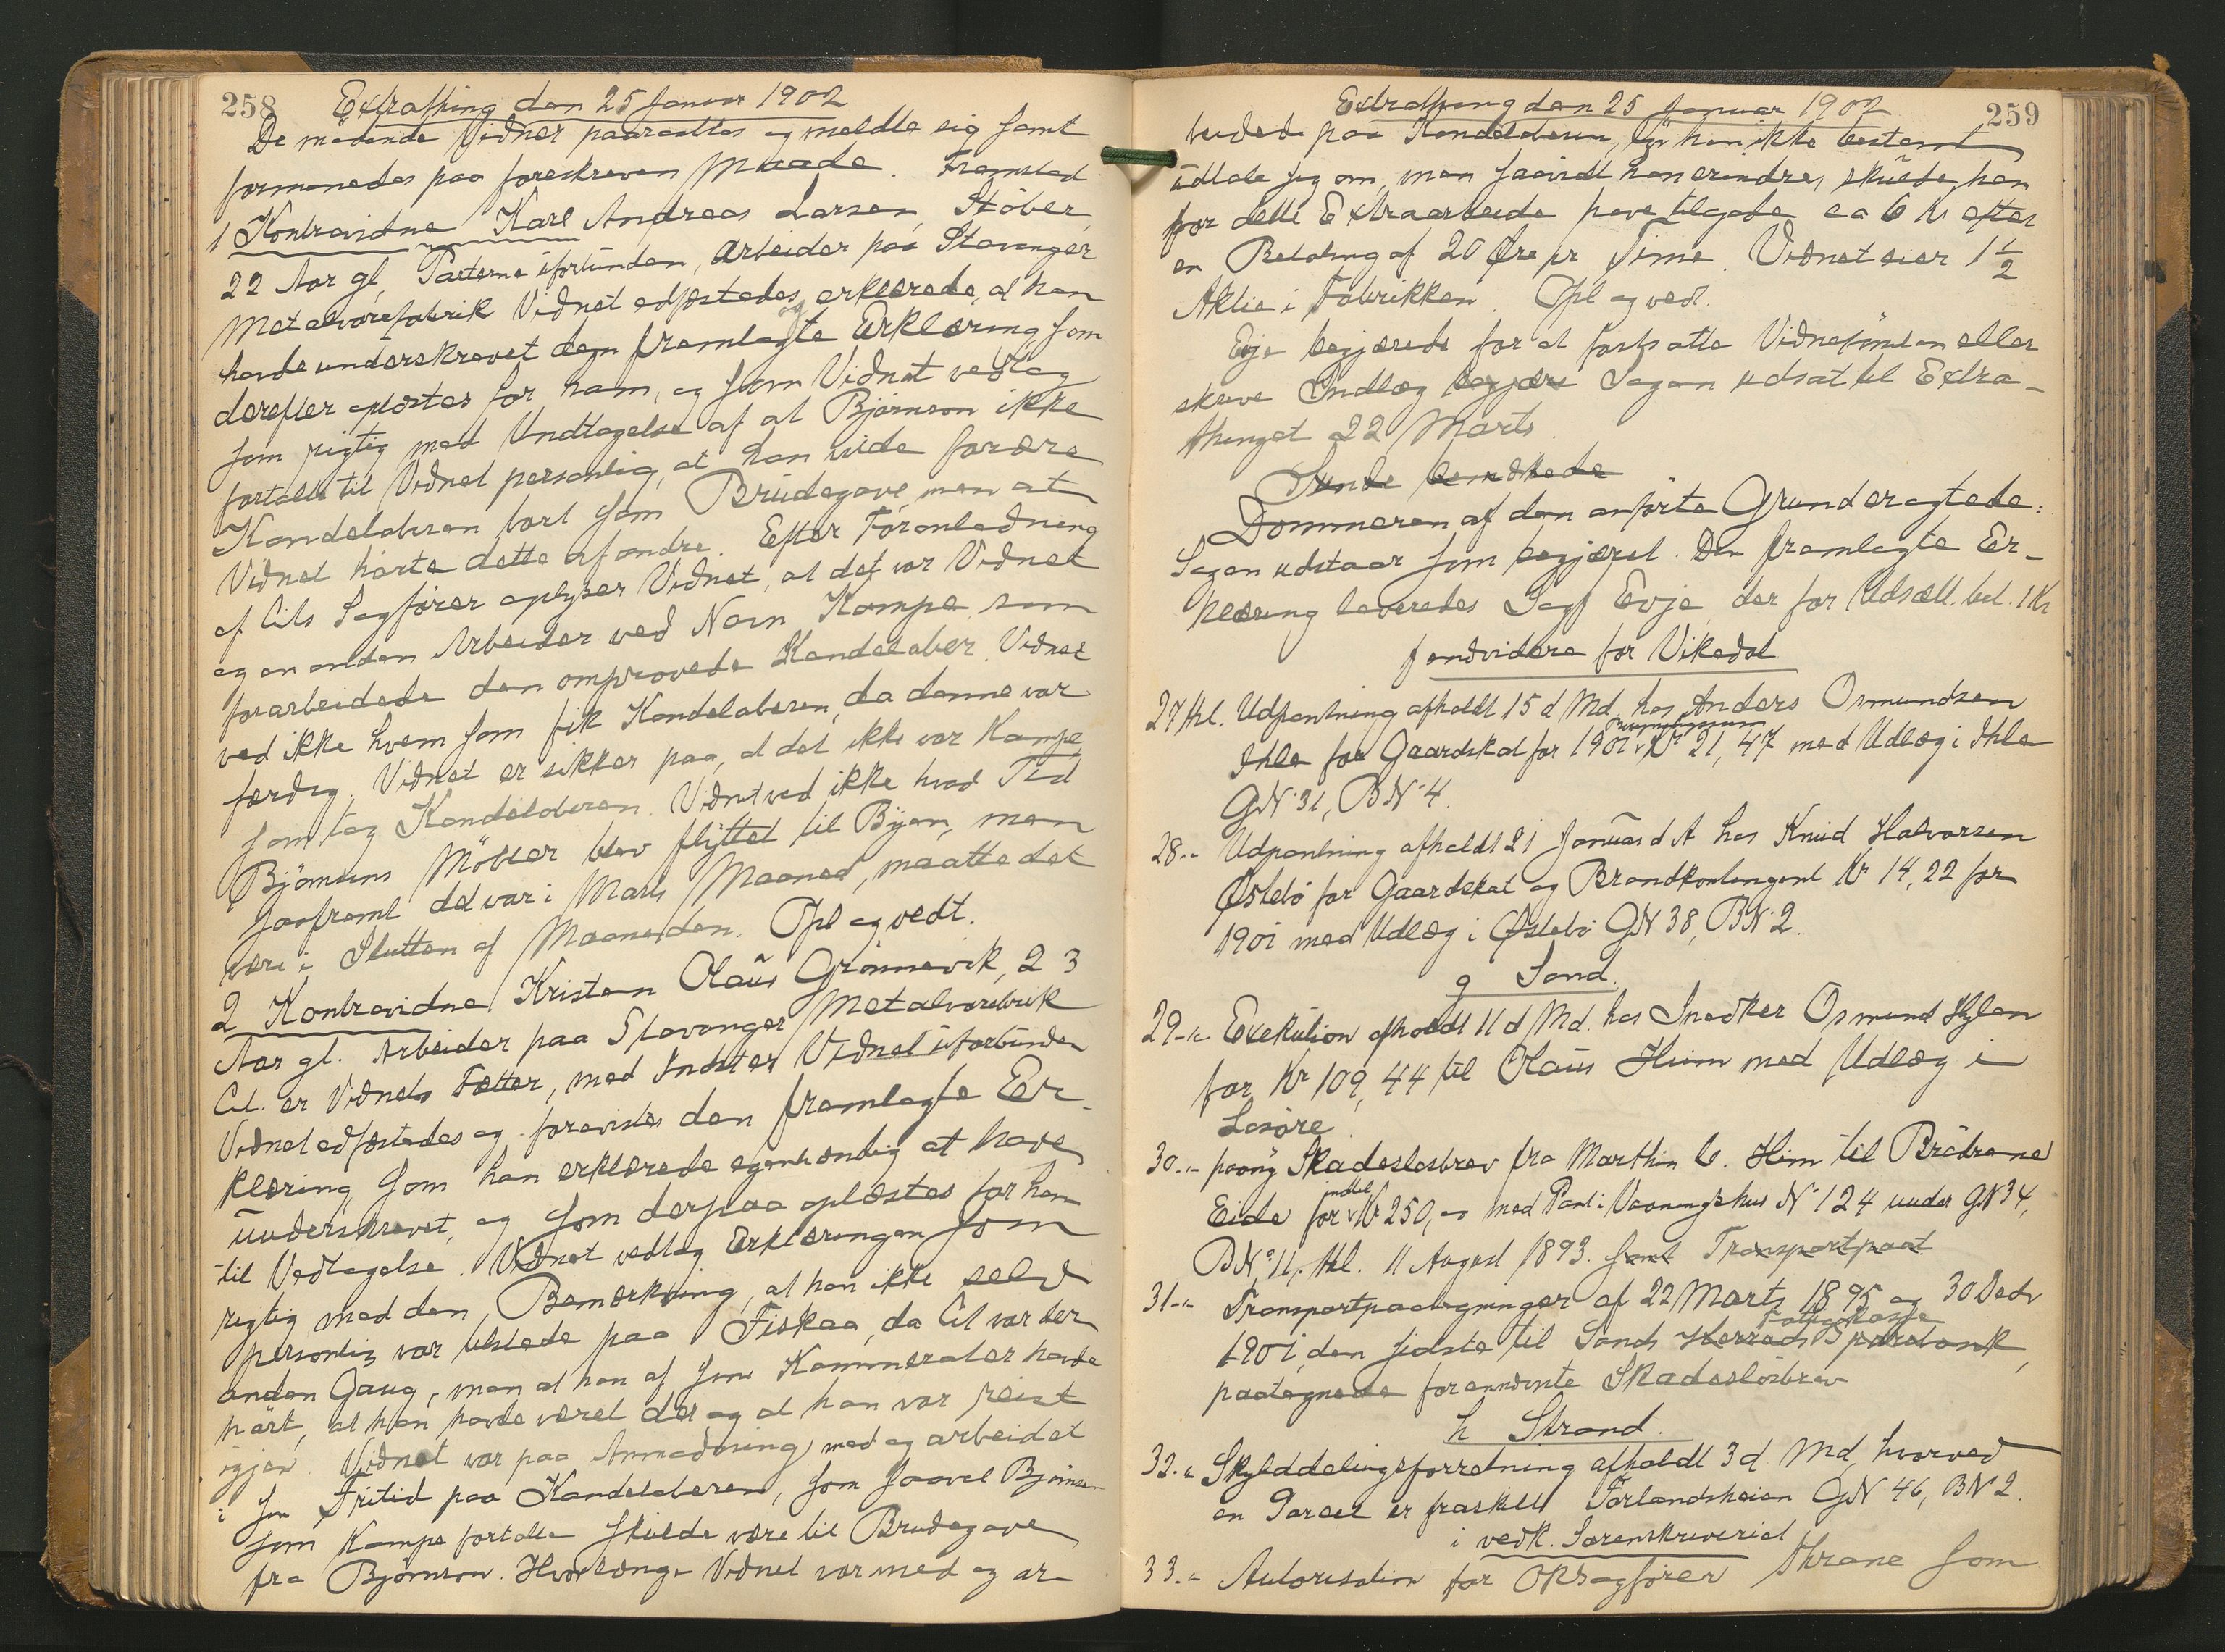 258 Extrathing den 25 Januar 1902
De mødende Vidner paaraabtes og meldte sig samt
formanedes paa foreskreven Maade. Fremstod
1 Kontravidne Karl Andreas Larsen, Støber,
22 Aar gl, Parterne uforbunden, Arbeider paa Stavanger
Metalvarefabrik Vidnet edfæstedes og erklærede, at han
havde underskrevet den fremlagte Erklæring, som
derefter oplæstes for ham, og som Vidnet vedtog
som rigtig med Undtagelse af at Bjørnson ikke
fortalte til Vidnet personlig, at han vilde forære
Kandelaberen bort som Brudegave, men at
Vidnet hørte dette af andre. Efter Foranledning
af Cits Sagfører oplyser Vidnet, at det var Vidnet
og en anden Arbeider ved Navn Kampe, som
forarbeidede den omprovede Kandelaber. Vidnet
ved ikke hvem som fik Kandelaberen, da denne var
færdig. Vidnet er sikker paa, at det ikke var Kampe
som tog Kandelaberen. Vidnet ved ikke hvad Tid
Bjørnsons Møbler blev flyttet til Byen, men
saafremt det var i Marts Maaned, maatte det
være i Slutten af Maaneden. Opl og vedt.
2 Kontravidne Kristen Olaus Grønnevik, 23
Aar gl. Arbeider paa Stavanger Metalvarebrik
Cit. er Vidnets Fætter, med Indst er Vidnet uforbunden
Vidnet edfæstedes og forevistes den fremlagte Er-
klæring, som han erklærede egenhændig at have
underskrevet, og som derpaa oplæstes for ham
til Vedtagelse. Vidnet vedtog Erklæringen som
rigtig med den Bemærkning, at han ikke selv
personlig var tilstede paa Fiskaa, da Cit var der
anden Gang, men at han af sine Kammerater havde
hørt, at han havde været der og at han var reist
igjen. Vidnet var paa Anmodning med og arbeidet
i sin Fritid paa Kandelaberen, som saavel Bjørnson
som Kampe fortalte skulde være til Brudegave
fra Bjørnson. Hvorlænge Vidnet var med og ar-
Extrathing den 25 Januar 1902 259
beidede paa Kandelaberen, tør han ikke bestemt
udtale sig om, men saavidt han erindrer, skulde han
for dette Extraarbeide have tilgode ca 6 Kr efter
en Betaling af 20 Øre pr Time. Vidnet eier 1 1/2
Aktie i Fabrikken. Opl og vedt.
Evje begjærede for at fortsætte Vidneførslen eller
skrive Indlæg begjær Sagen udsat til Extra-
thinget 22 Marts.
Sunde bemærkede
Dommeren af den anførte Grund eragtede:
Sagen udstaar som begjæret. Den fremlagte Er-
klæring leveredes Sagf Evje, der for Udsætt. bet. 1 Kr
f endvidere for Vikedal
27 thl. Udpantning afholdt 15 d Md hos Anders Osmundsen
Ihle for Gaardskat for 1901 Kr 21,47 med Udlæg i Ihle
GN 31, BN 4.
28-"- Udpantning afholdt 21 Januar d A hos Knud Halvorsen
Østebø for Gaardskat og Brandkontingent Kr 14,22 for
1901 med Udlæg i Østebø GN 38, BN 2.
g Sand.
29-"- Exekution afholdt 11 d Md. hos Snedker Osmund Hylen
for Kr 109,44 til Olaus Hiim med Udlæg i
Løsøre
30-"- paany Skadesløsbrev fra Marthin C. Hiim til Brødrene
Eide for indtil Kr 250,00 med Pant i Vaaningshus No 124 under GN 34,
BNo 11, thl. 11 August 1893. samt Transportpaat
31-"- Transportpaategninger af 22 Marts 1895 og 30 Decbr
1901, den sidste til Sands Herreds Sparebank,
paategnede forannævnte Skadesløsbrev
h Strand.
32-"- Skylddelingsforretning afholdt 3 d Md, hvorved
en Parcel er fraskilt Førlandsheien GN 46, BN 2.
i vedk. Sorenskriveriet
33-"- Autorisation for ORSagfører Thrane som